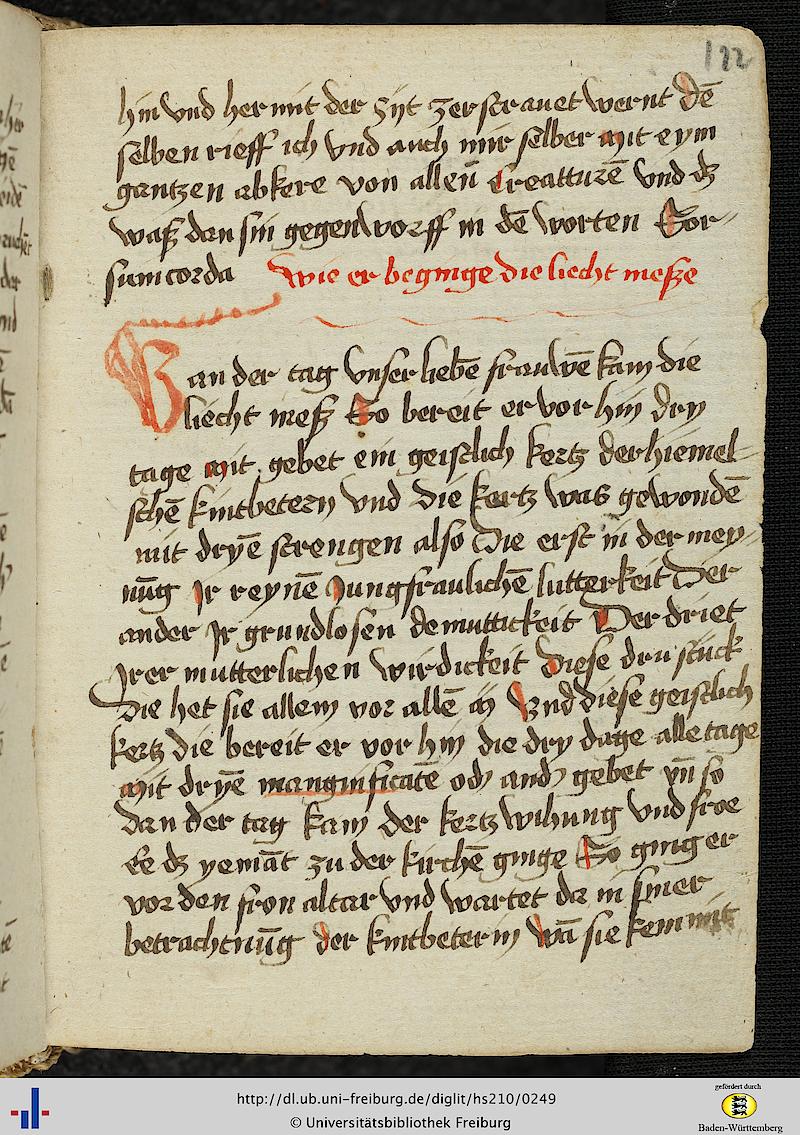 122
hin vnd her mit der zijt zerstrauet wernt dē
selben rieff ich vnd auch mir selber mit eym
gantzen abkere von allen Creatturē vnd dz
waſz dan sin gegenworff in dē worten Sor-
sum corda wie er beginge die liecht meſze
Wan der tag vnser liebē frauwē kam die
liecht meſz So bereit er vor hin dry
tage mit gebet ein geistlich kertz der hiemel-
schē kintbetern vnd die kertz was gewondē
mit dryē strengen also Die erst in der mey-
nūg Jr reynē Jungfraulichē lutterkeit Der
ander Jr grundlosen demuttickeit Der driet
Jrer mutterlichen wirdickeit Diese dru stuck
Die het sie allein vor allē Vnd diese geistlich
kertz die bereit er vor hin die dry dage alle tage
mit dryē mangnificatē od and gebet vn̄ so
dan der tag kam der kertz wihung vnd froe
Ee dz yemāt zu der kirchē ginge So ging er
vor den fron altar vnd wartet da in siner
betrachtnūg der kintbeterin wā sie kem mit
http://dl.ub.uni-freiburg.de/diglit/hs210/0249
© Universitätsbibliothek Freiburg
gefördert durch
Baden-Württemberg